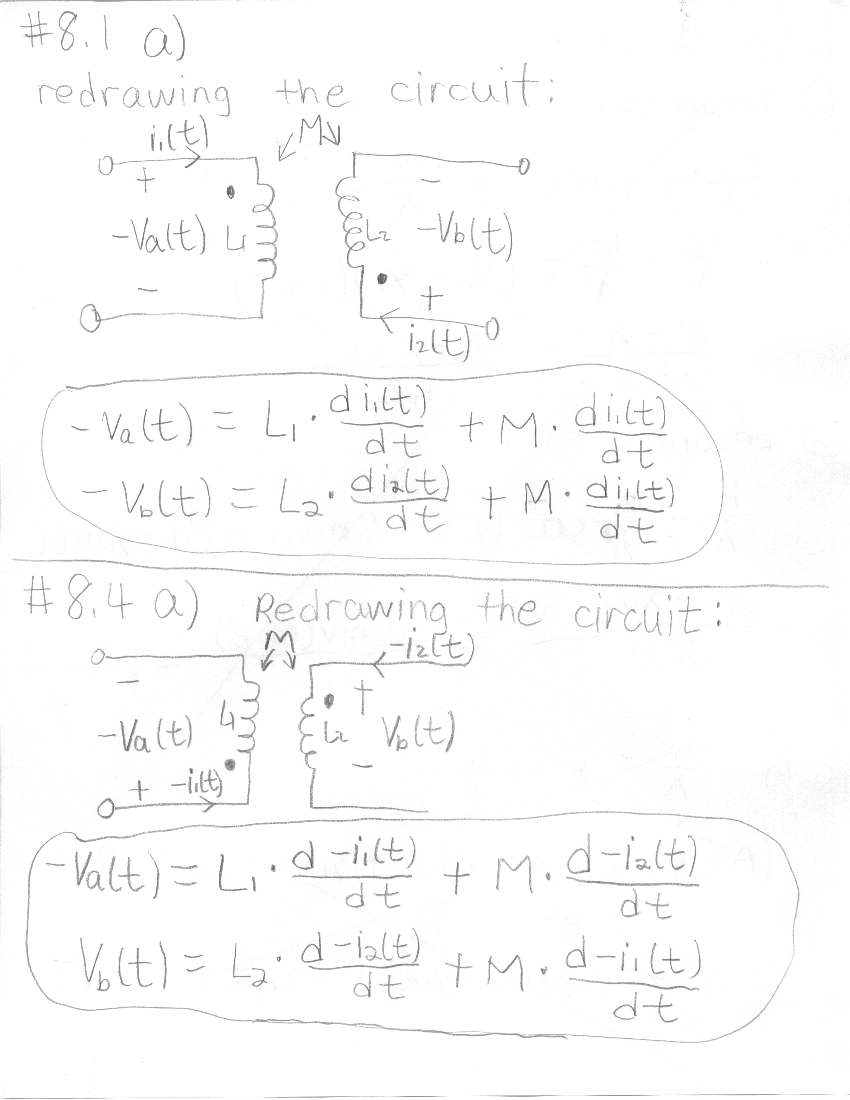 #8.1 a)
redrawing the circuit:
i₁(t) M
+ −
-Va(t) L₁ L₂ -Vb(t)
− +
i₂(t)
-Va(t) = L₁ · di₁(t)/dt + M · di₁(t)/dt
-Vb(t) = L₂ · di₂(t)/dt + M · di₁(t)/dt
#8.4 a) Redrawing the circuit:
M -i₂(t)
− +
-Va(t) L₁ L₂ Vb(t)
+ -i₁(t) −
-Va(t) = L₁ · d-i₁(t)/dt + M · d-i₂(t)/dt
Vb(t) = L₂ · d-i₂(t)/dt + M · d-i₁(t)/dt